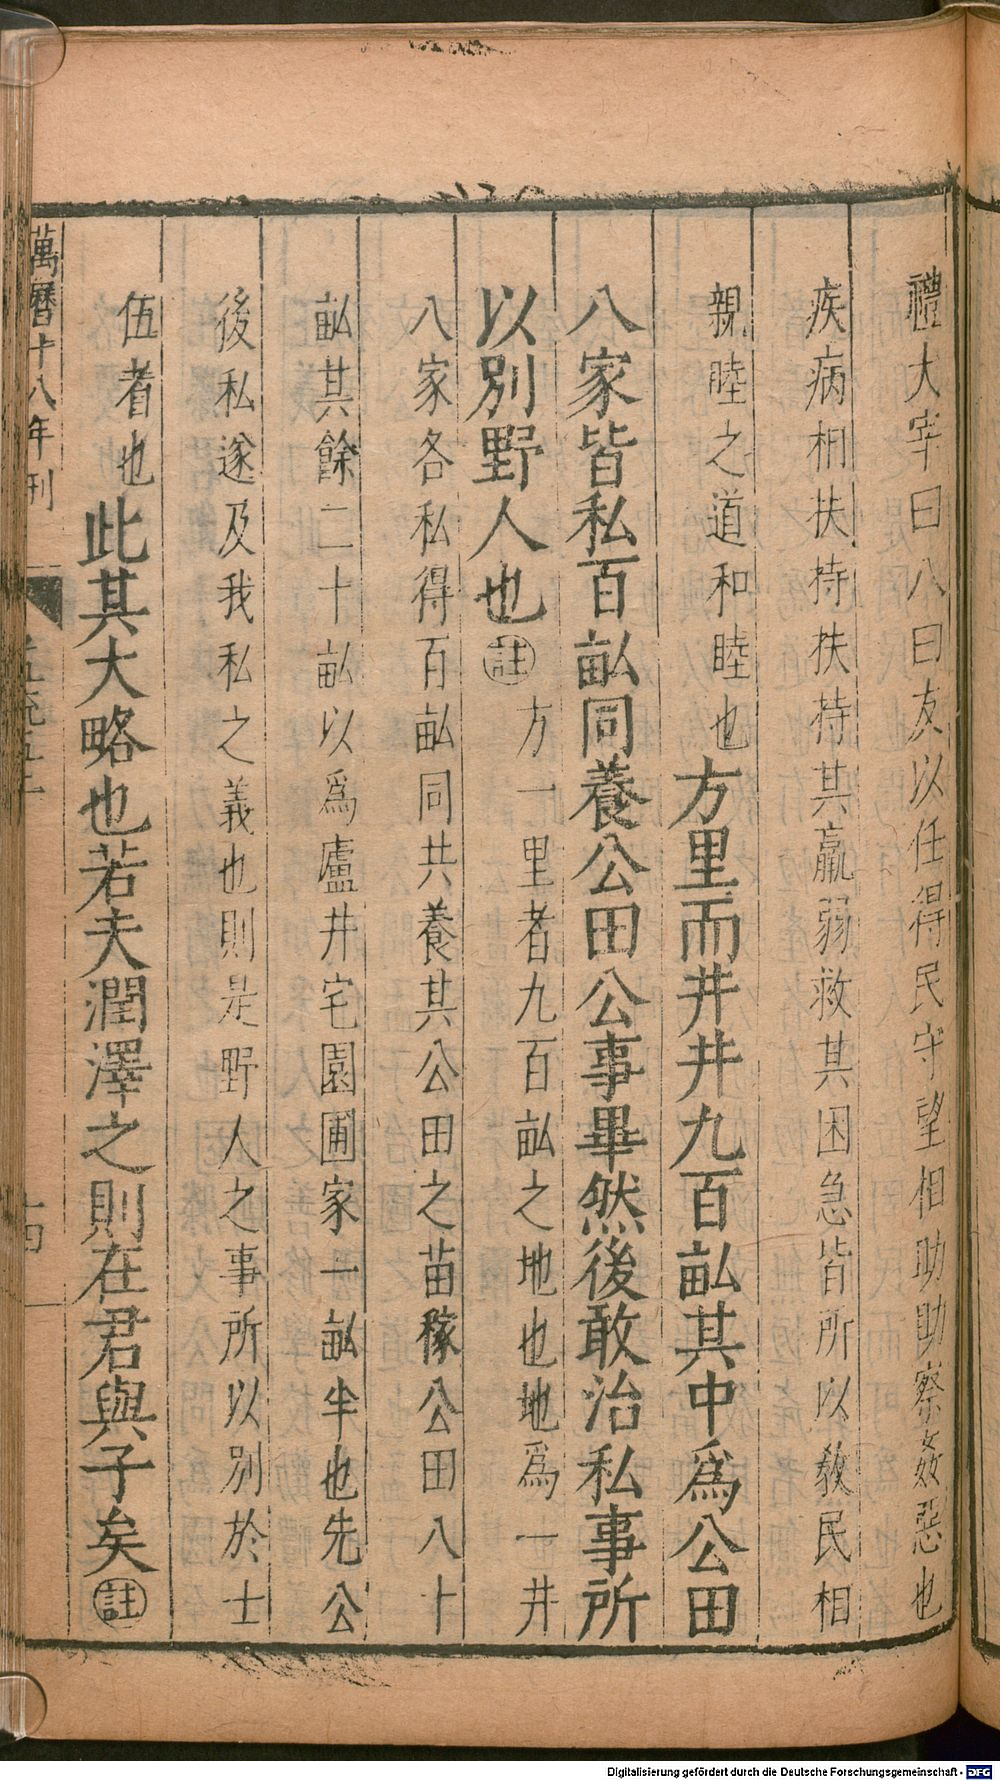 禮大宰曰八曰友以任得民守望相助助察姦惡也
疾病相扶持扶持其羸弱救其困急皆所以敎民相
親睦之道和睦也方里而井井九百畝其中爲公田
八家皆私百畝同養公田公事畢然後敢治私事所
以別野人也註方一里者九百畝之地也地爲一井
八家各私得百畝同共養其公田之苗稼公田八十
畝其餘二十畝以爲廬井宅園圃家一畝半也先公
後私遂及我私之義也則是野人之事所以別於士
伍者也此其大略也若夫潤澤之則在君與子矣註
萬曆十八年刊
十四
Digitalisierung gefördert durch die Deutsche Forschungsgemeinschaft - DFG